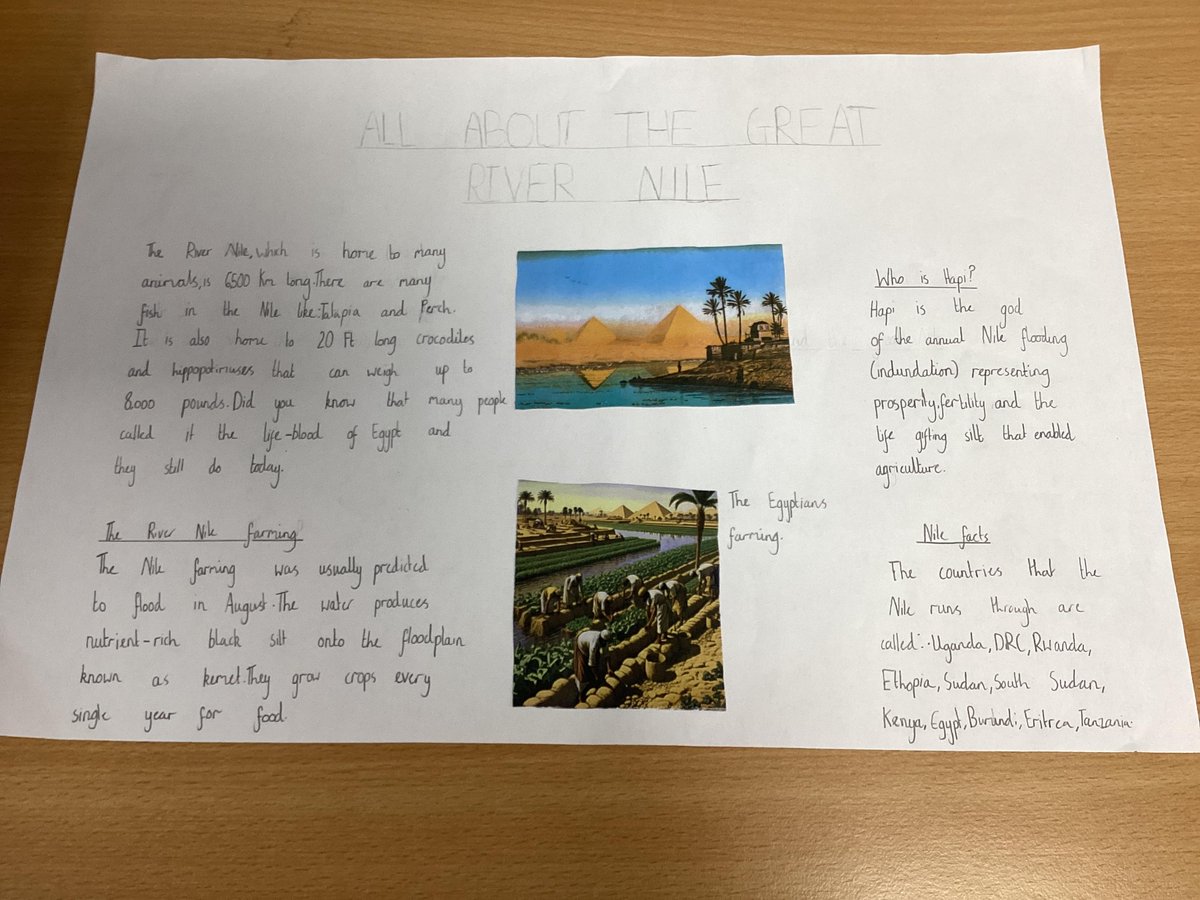 ALL ABOUT THE GREAT
RIVER NILE
The River Nile, which is home to many
animals, is 6500 Km long. There are many
fish in the Nile like: Talapia and Perch.
It is also home to 20 Ft long crocodiles
and hippopotimuses that can weigh up to
8,000 pounds. Did you know that many people
called it the life-blood of Egypt and
they still do today.
The River Nile farming
The Nile farming was usually predicted
to flood in August. The water produces
nutrient-rich black silt onto the floodplain
known as kemet. They grow crops every
single year for food.
The Egyptians
farming.
Who is Hapi?
Hapi is the god
of the annual Nile flooding
(indundation) representing
prosperity, fertility and the
life gifting silt that enabled
agriculture.
Nile facts
The countries that the
Nile runs through are
called:. Uganda, DRC, Rwanda,
Ethopia, Sudan, South Sudan,
Kenya, Egypt, Burundi, Eritrea, Tanzania.